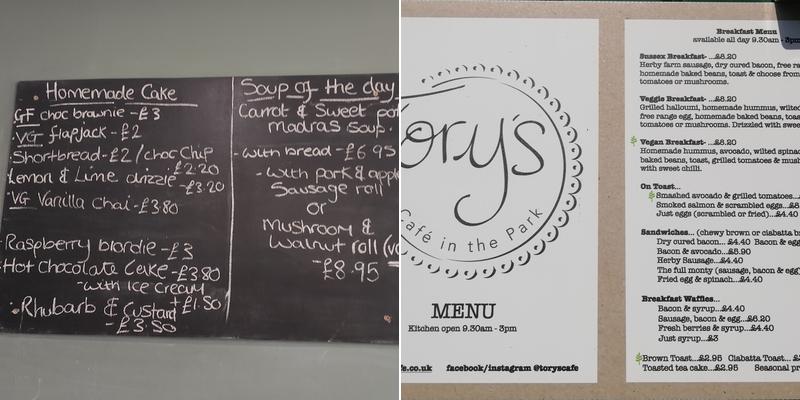 Homemade Cake
GF choc brownie - £3
VG flapjack - £2
Shortbread - £2 / choc chip
£2.20
Lemon & Lime drizzle
- £3.20
VG Vanilla Chai - £3.80
Raspberry blondie - £3
Hot Chocolate Cake - £3.80
- with ice cream
+ £1.50
Rhubarb & Custard
- £3.50
Soup of the day
Carrot & Sweet
madras soup.
- with bread - £6.95
- with pork &
Sausage roll
or
Mushroom &
Walnut roll
- £8.95
Tory's
Café in the Park
MENU
Kitchen open 9.30am - 3pm
facebook/instagram @toryscafe
Breakfast Menu
available all day 9.30am - 3pm
Sussex Breakfast- ...£8.20
Herby farm sausage, dry cured bacon, free
homemade baked beans, toast & choose from
tomatoes or mushrooms.
Veggie Breakfast- ...£8.20
Grilled halloumi, homemade hummus,
free range egg, homemade baked beans,
tomatoes or mushrooms. Drizzled with
Vegan Breakfast- ...£8.20
Homemade hummus, avocado, wilted
baked beans, toast, grilled tomatoes &
with sweet chilli.
On Toast...
Smashed avocado & grilled tomatoes...
Smoked salmon & scrambled eggs...£8
Just eggs (scrambled or fried)...£4.40
Sandwiches... (chewy brown or ciabatta
Dry cured bacon...£4.40 Bacon &
Bacon & avocado...£5.90
Herby Sausage...£4.40
The full monty (sausage, bacon & egg)
Fried egg & spinach...£4.40
Breakfast Waffles...
Bacon & syrup...£4.40
Sausage, bacon & egg...£6.20
Fresh berries & syrup...£4.40
Just syrup...£3
Brown Toast...£2.95 Ciabatta Toast...
Toasted tea cake...£2.95 Seasonal